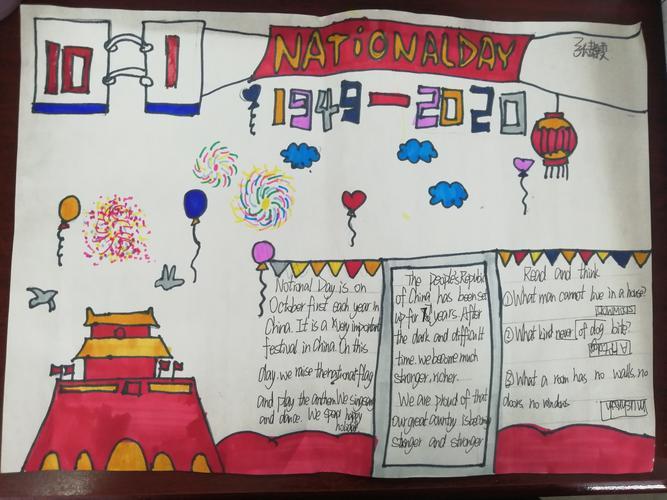 10 1
NATiONALDAY
1949—2020
National Day is on
October first each year in
China. It is a very important
festival in China. On this
day, we raise the national flag
and play the anthem. We sing song
and dance. We spend happy
holiday
The People's Republic
of China has been set
up for 71 years. After
the dark and difficult
time. we become much
stronger, richer.
We are proud of that
our great country is becoming
stronger and stronger
Read and think
①What man cannot live in a house?
snowman
②What kind never of dog bite?
③What a room has no walls, no
doors no windows